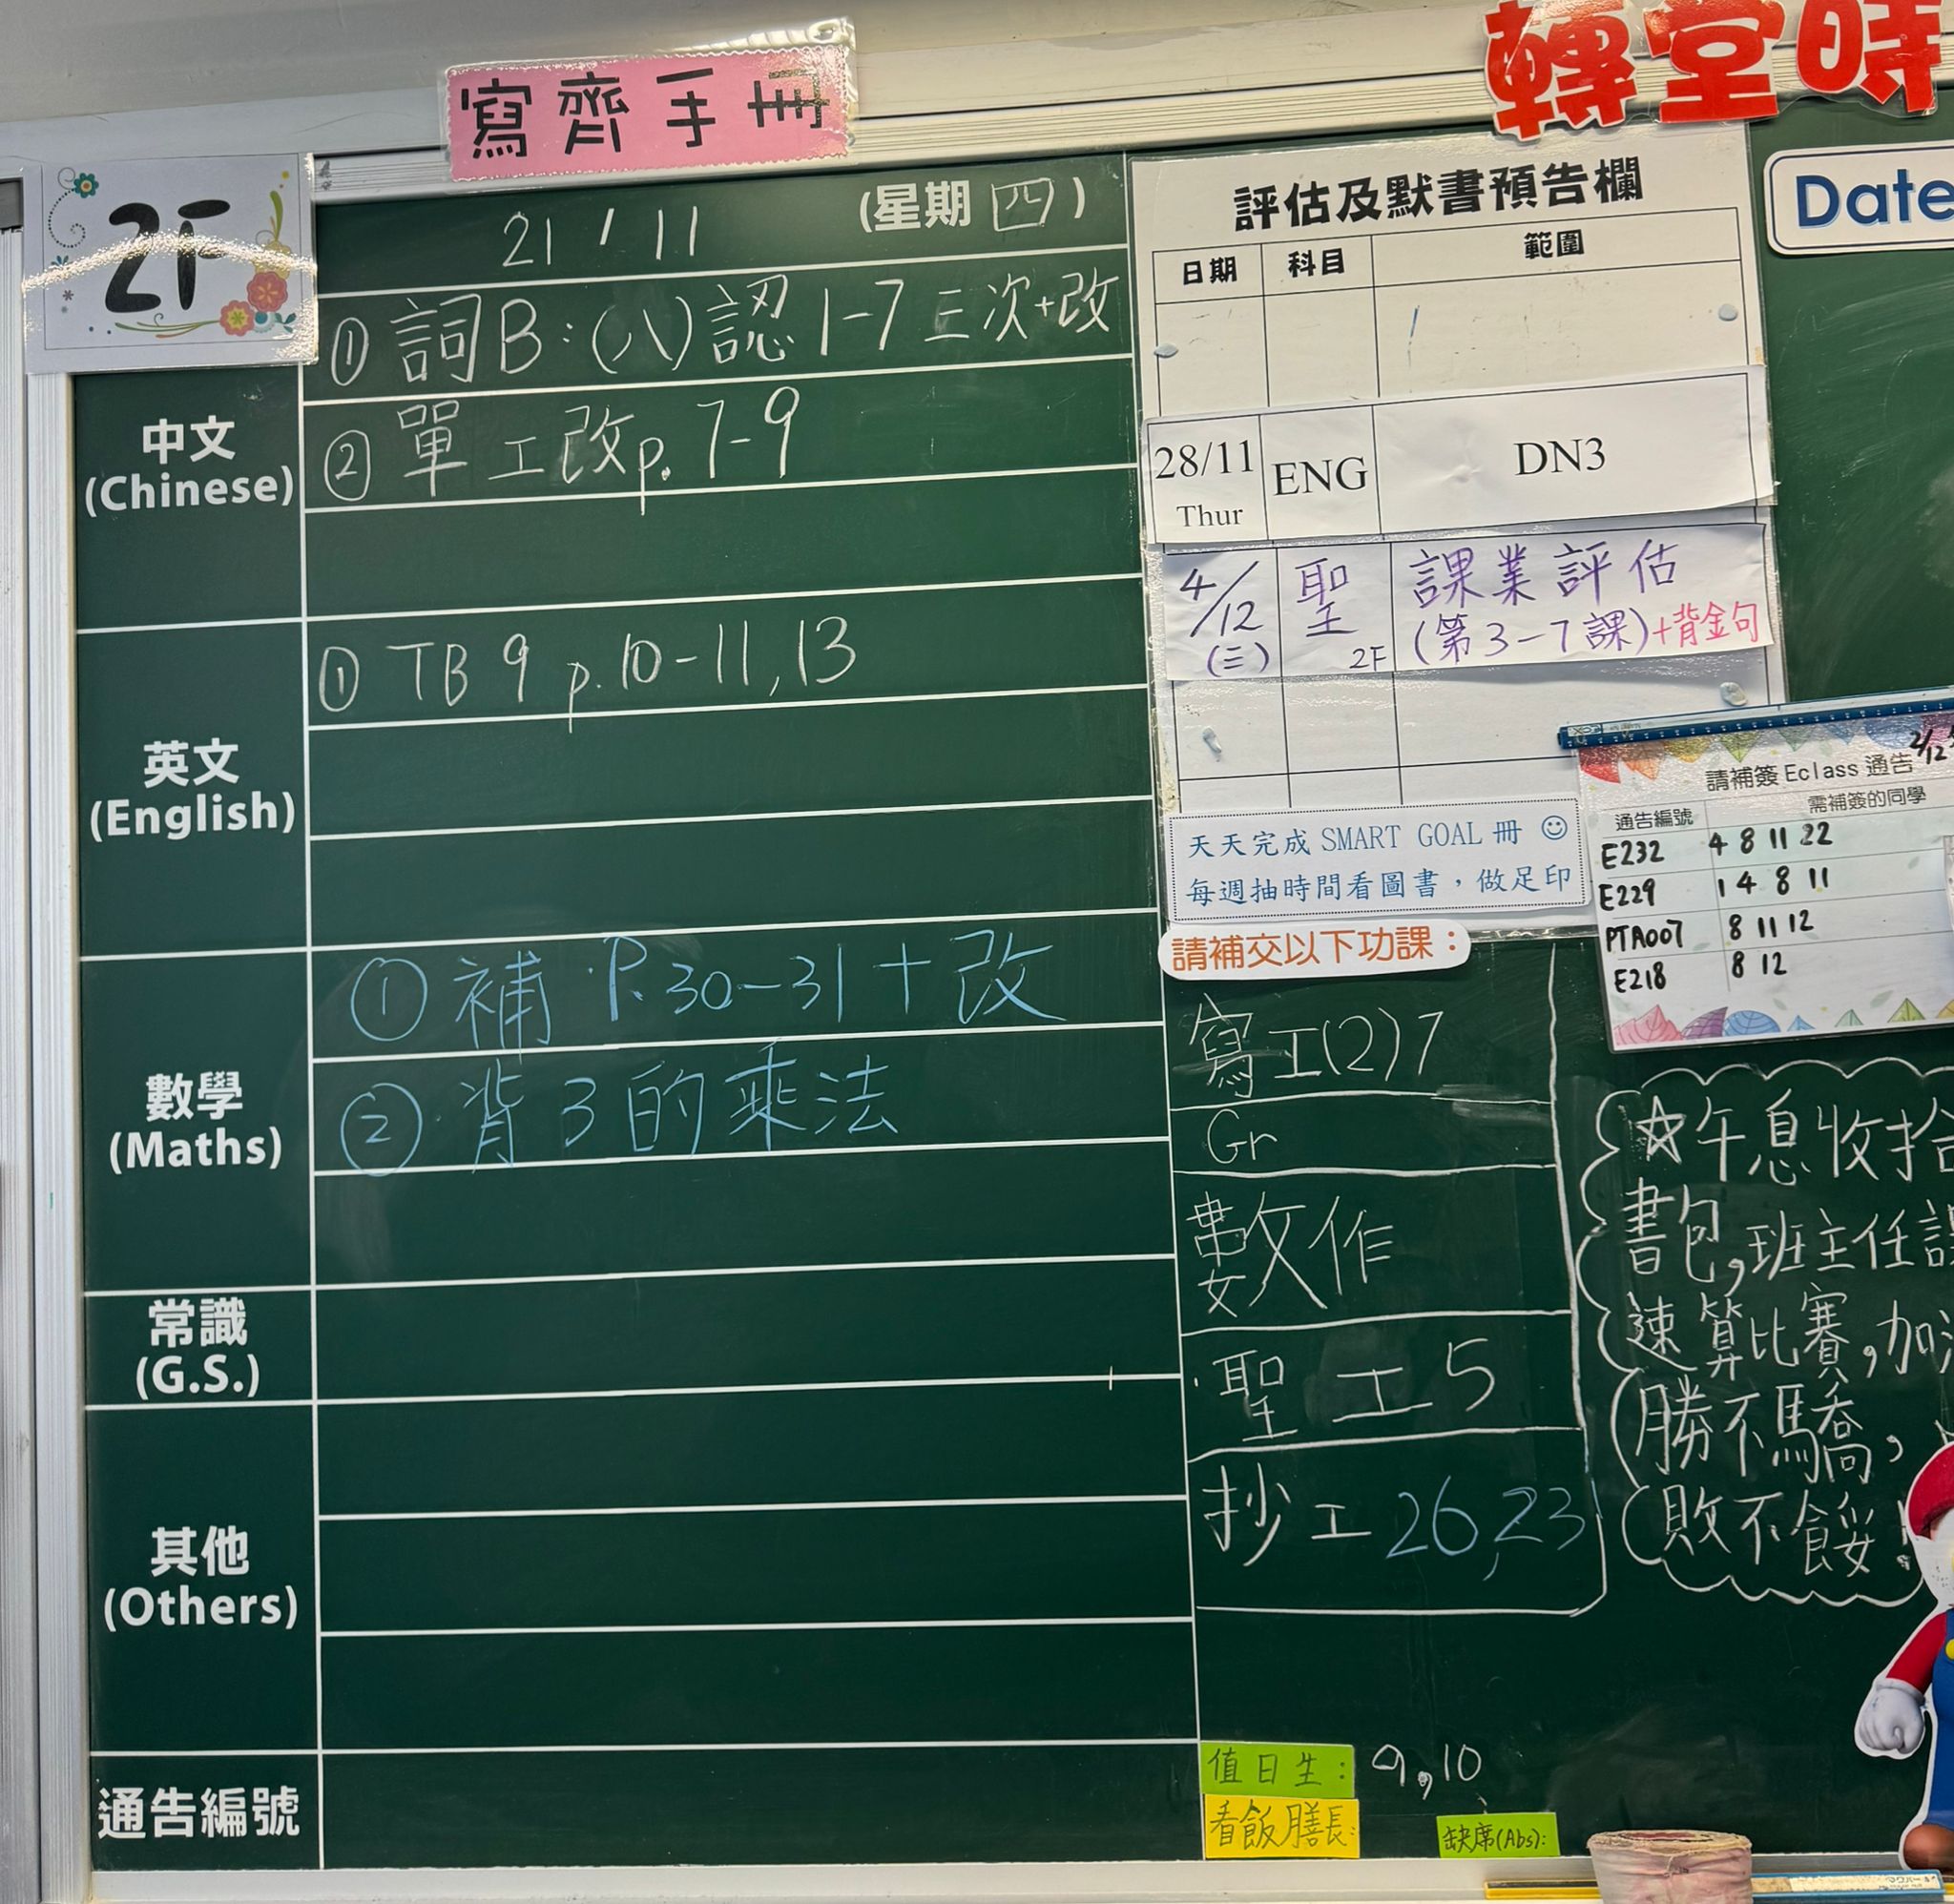 寫齊手冊
轉堂時
2F
21/11 (星期四)
Date
中文
(Chinese)
① 詞B:(八)認1-7三次+改
② 單工改p.7-9
英文
(English)
① TB 9 p.10-11,13
數學
(Maths)
① 補 P.30-31+改
② 背3的乘法
常識
(G.S.)
其他
(Others)
通告編號
評估及默書預告欄
日期 科目 範圍
28/11
Thur ENG DN3
4/12
(三) 聖
2F 課業評估
(第3-7課)+背金句
天天完成 SMART GOAL 冊 ☺
每週抽時間看圖書，做足印
2/12
請補簽 Eclass 通告
通告編號 需補簽的同學
E232 4 8 11 22
E229 1 4 8 11
PTA007 8 11 12
E218 8 12
請補交以下功課：
寫工(2)7
Gr
數作
聖工5
抄工26,23
☆午息收拾
書包,班主任課
速算比賽,加
勝不驕,
敗不餒!
值日生: 9,10
看飯膳長:
缺席(Abs):